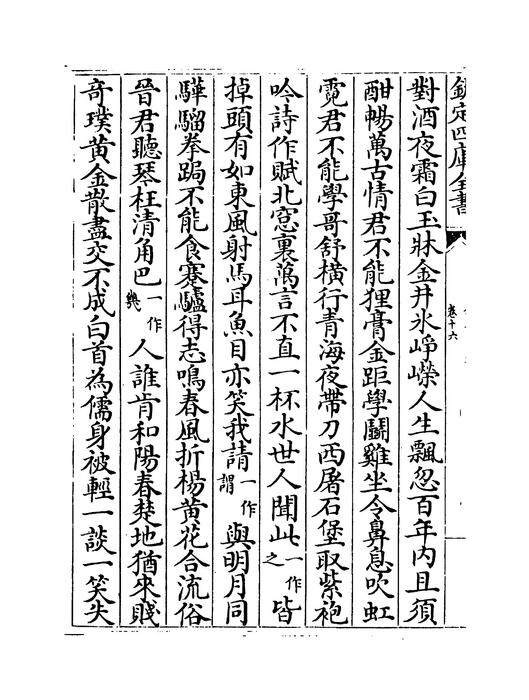 欽定四庫全書
卷十六
對酒夜霜白玉牀金井氷崢嶸人生飄忽百年內且須
酣暢萬古情君不能狸膏金距學鬬雞坐令鼻息吹虹
霓君不能學哥舒橫行青海夜帶刀西屠石堡取紫袍
吟詩作賦北窻裏萬言不直一杯水世人聞此一作之皆
掉頭有如東風射馬耳魚目亦笑我請一作謂與明月同
驊騮拳跼不能食蹇驢得志鳴春風折楊黄花合流俗
晉君聽琴枉清角巴一作幾人誰肯和陽春楚地猶來賤
竒璞黄金散盡交不成白首為儒身被輕一談一笑失